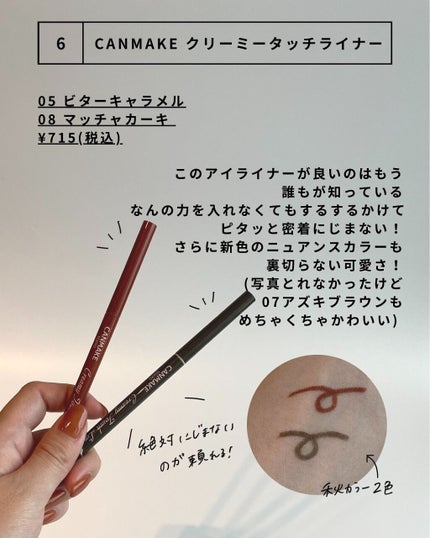 6 CANMAKE クリーミータッチライナー
05 ビターキャラメル
08 マッチャカーキ
¥715(税込)
このアイライナーが良いのはもう
誰もが知っている
なんの力を入れなくてもするするかけて
ピタッと密着にじまない！
さらに新色のニュアンスカラーも
裏切らない可愛さ！
(写真とれなかったけど
07アズキブラウンも
めちゃくちゃかわいい)
CANMAKE
Creamy
CANMAKE Creamy Touch
絶対にじまない
のが頼れる！
秋カラー2色